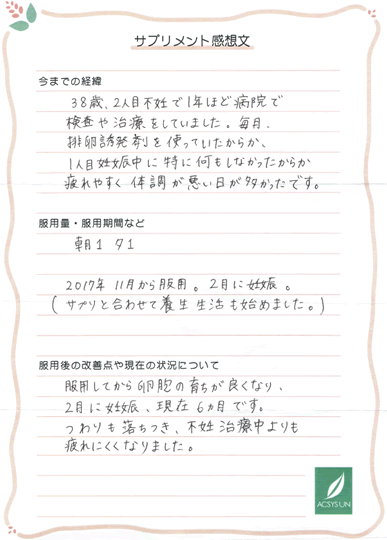 サプリメント感想文
今までの経緯
38歳、2人目不妊で1年ほど病院で
検査や治療をしていました。毎月、
排卵誘発剤を使っていたからか、
1人目妊娠中に特に何もしなかったからか
疲れやすく体調が悪い日が多かったです。
服用量・服用期間など
朝1 夕1
2017年 11月から服用。2月に妊娠。
(サプリと合わせて養生生活も始めました。)
服用後の改善点や現在の状況について
服用してから卵胞の育ちが良くなり、
2月に妊娠、現在6ヵ月です。
つわりも落ちつき、不妊治療中よりも
疲れにくくなりました。
ACSYSUN